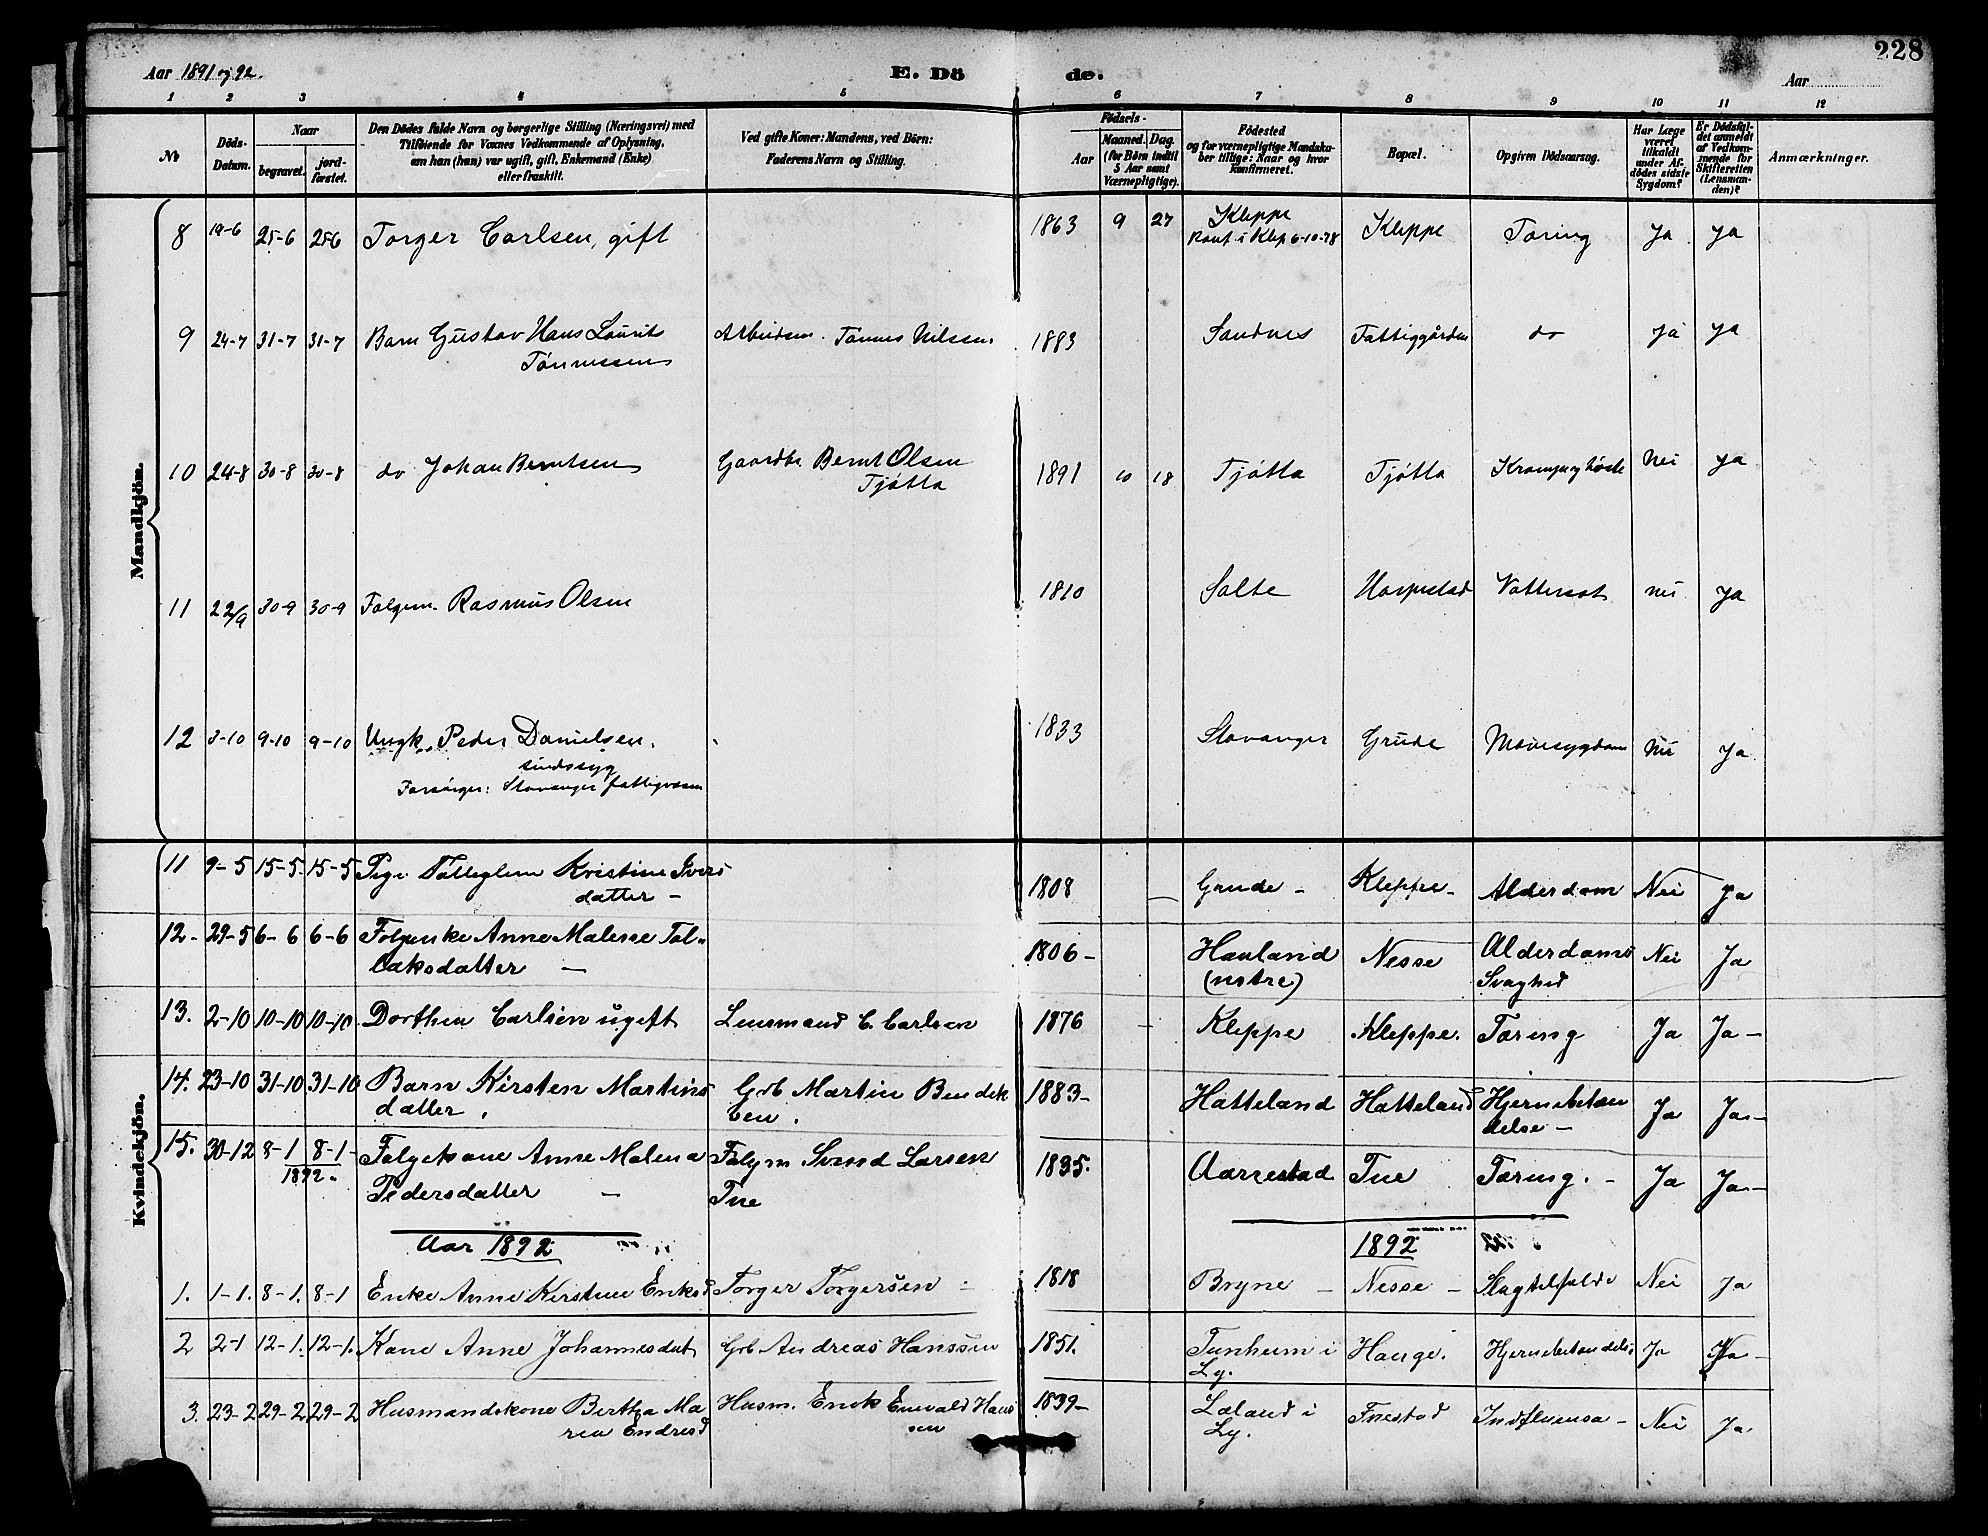 228
Aar 1891 og 92.
E. Döde.
Aar
1 2 3 4 5 6 7 8 9 10 11 12
No
Döds-Datum.
Naar
begravet.
jordfæstet.
Den Dödes fulde Navn og borgerlige Stilling (Næringsvei) med
Tilföiende for Voxnes Vedkommende af Oplysning,
om han (hun) var ugift, gift, Enkemand (Enke)
eller fraskilt.
Ved gifte Koner: Mandens, ved Börn:
Faderens Navn og Stilling.
Födsels-
Aar
Maaned. Dag.
(for Börn indtil
5 Aar samt
Værnepligtige).
Födested
og for værnepligtige Mandskaber tillige: Naar og hvor
konfirmeret.
Bopæl.
Opgiven Dödsaarsag.
Har Læge
været
tilkaldt
under Afdödes sidste
Sygdom?
Er Dödsfaldet anmeldt
af Vedkommende for
Skifteretten
(Lensmanden)?
Anmærkninger.
Mandkjön.
8 19-6 25-6 25-6 Torger Carlsen, gift 1863 9 27 Kleppe Kleppe Tæring Ja Ja
Konf. i Klep 6-10-78
9 24-7 31-7 31-7 Barn Gustav Hans Laurits Arbeidsm. Tønnes Nilsen 1883 Sandnes Fattiggården do Ja Ja
Tønnessen
10 24-8 30-8 30-8 do Johan Berntsen Gaardbr. Bernt Olsen 1891 10 18 Tjøtta Tjøtta Nei Ja
Tjøtta
11 22/9 30-9 30-9 Folgem. Rasmus Olsen 1810 Salte Horpestad Vattersot Nei Ja
12 3-10 9-10 9-10 Ungk. Peder Danielsen. 1833 Stavanger Grude Mavesygdom Nei Ja
sindssyg
Forsørger: Stavanger fattigvæsen
Kvindekjön.
11 9-5 15-5 15-5 Pige Kristine Ivers 1808 Grude - Kleppe - Alderdom Nei Ja
datter -
12- 29-5 6-6 6-6 Folgenke Anne Malene Tol- 1806- Hauland Nesse Alderdoms Nei Ja
laksdatter - (nstre) Svaghed
13. 2-10 10-10 10-10 Dorthea Carlsen ugift Lensmand C. Carlsen 1876 - Kleppe Kleppe. Tæring Ja Ja-
14. 23-10 31-10 31-10 Barn Kirsten Martins Grb Martin Bendik 1883- Hatteland Hatteland Hjernebetæn Ja Ja-
datter. sen. delse -
15. 30-12 8-1 8-1- Folgekone Anne Malena Folgm Svend Larsen 1835. Aarrestad Tue Tæring. - Ja Ja-
1892. Pedersdatter - Tue
Aar 1892 1892
1. 1-1. 8-1. 8-1 Enke Anne Kirstine Eriksd Torger Torgersen - 1818 Bryne - Nesse - Slagtilfælde Nei Ja
2 2-1 12-1. 12-1. Kone Anne Johannesdat Grb Andreas Hanssen 1851. Tunheim i Hauge. Hjernebetændelse Ja Ja-
Ly.
3. 23-2 29-2 29-2 Husmandskone Bertha Ma Husm. Enok Enevald Hans 1839- Laland i Fuestad Indfluensa - Nei Ja
ren Endresd sen Ly.